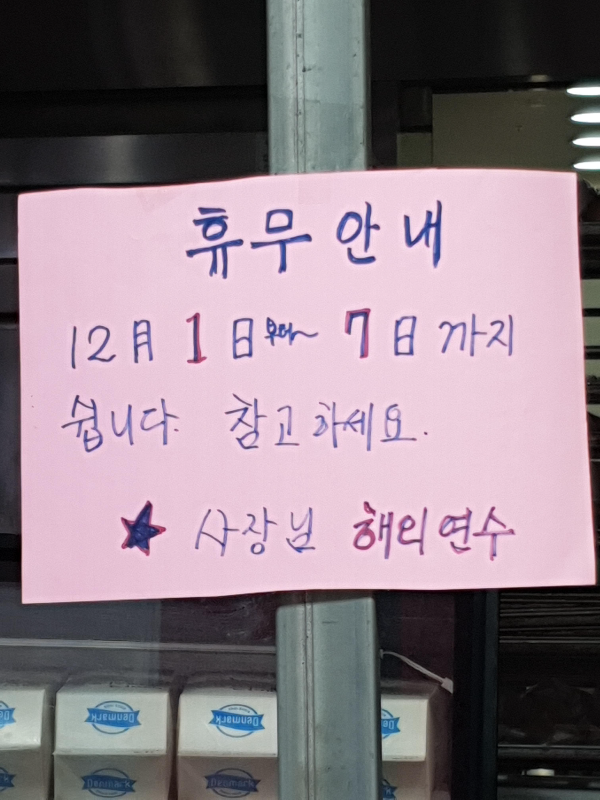 휴무안내
12月 1日부터~ 7日까지
쉽니다. 참고하세요.
★ 사장님 해외연수
Denmark
Denmark
Denmark
Denmark